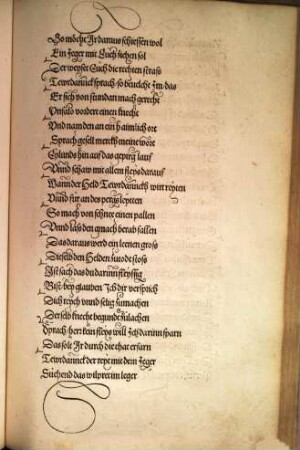 So möcht Ir daraus schiessen wol
Ein Jeger mit Euch ziehen sol
Der weyset Euch die rechten straß
Tewrdannck sprach so beuelche Im das
Er sich von stundan mach gerecht
Vnfalo vordert einen knecht
Vnd nam den an ein haimlich ort
Sprach gesell merckh meine wort
Eylunds hin auf das gepirg lauf
Vnnd schaw mit allem fleys darauf
Wann der Held Tewrdannckh wirt reyten
Vnnd für an des pergs leytten
So mach von schnee einen pallen
Vnnd laß den gmach herab fallen
Das daraus werd ein leenen gross
Die selb den Helden zu tod stoss
Ist sach das du darinn fleyssig
Bist bey glauben Ich dir versprich
Dich reych vnnd selig zu machen
Der selb knecht begunde zu lachen
Sprach herr kein fleys will Ich darinn sparn
Das solt Ir durch die that erfarn
Tewrdannck der reyt mit dem Jeger
Suchend das wilpret im leger